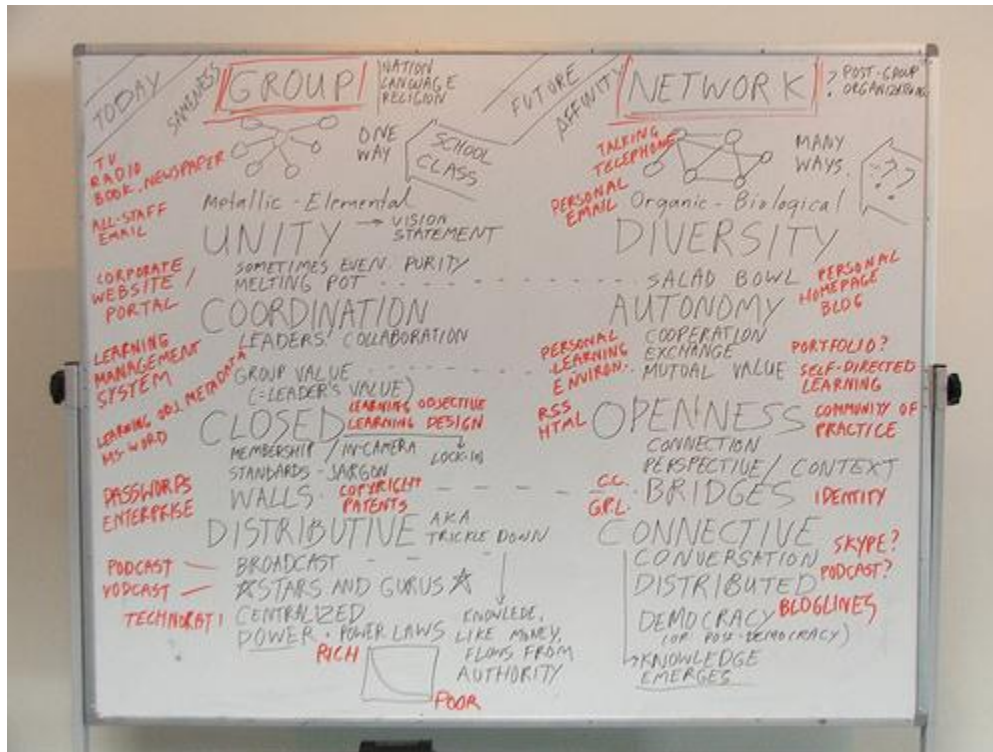 TODAY
SAMENESS
GROUP
NATION
LANGUAGE
RELIGION
ONE
WAY
SCHOOL
CLASS
TV
RADIO
BOOK, NEWSPAPER
ALL-STAFF
EMAIL
Metallic - Elemental
UNITY → VISION
STATEMENT
SOMETIMES EVEN PURITY
MELTING POT
CORPORATE
WEBSITE /
PORTAL
COORDINATION
LEADERS' COLLABORATION
LEARNING
MANAGEMENT
SYSTEM
GROUP VALUE
(=LEADER'S VALUE)
LEARNING OBJ. METADATA
MS-WORD
CLOSED
LEARNING OBJECTIVE
LEARNING DESIGN
MEMBERSHIP / IN-CAMERA
LOCK-IN
STANDARDS - JARGON
WALLS
COPYRIGHT
PATENTS
PASSWORDS
ENTERPRISE
DISTRIBUTIVE AKA
TRICKLE DOWN
PODCAST
VODCAST
BROADCAST
☆STARS AND GURUS☆
TECHNORATI
CENTRALIZED
POWER • POWER LAWS
RICH
POOR
KNOWLEDE,
LIKE MONEY,
FLOWS FROM
AUTHORITY
FUTURE
AFFINITY
NETWORK
? POST-GROUP
ORGANIZATING
TALKING
TELEPHONE
MANY
WAYS
? ? ?
PERSONAL
EMAIL
Organic - Biological
DIVERSITY
SALAD BOWL
PERSONAL
HOMEPAGE
BLOG
AUTONOMY
COOPERATION
EXCHANGE
MUTUAL VALUE
PERSONAL
LEARNING
ENVIRON.
PORTFOLIO?
SELF-DIRECTED
LEARNING
RSS
HTML
OPENNESS
COMMUNITY OF
PRACTICE
CONNECTION
PERSPECTIVE / CONTEXT
C.C.
G.P.L.
BRIDGES
IDENTITY
CONNECTIVE
CONVERSATION
SKYPE?
PODCAST?
DISTRIBUTED
DEMOCRACY
BLOGLINES
(OR POST-DEMOCRACY)
KNOWLEDGE
EMERGES